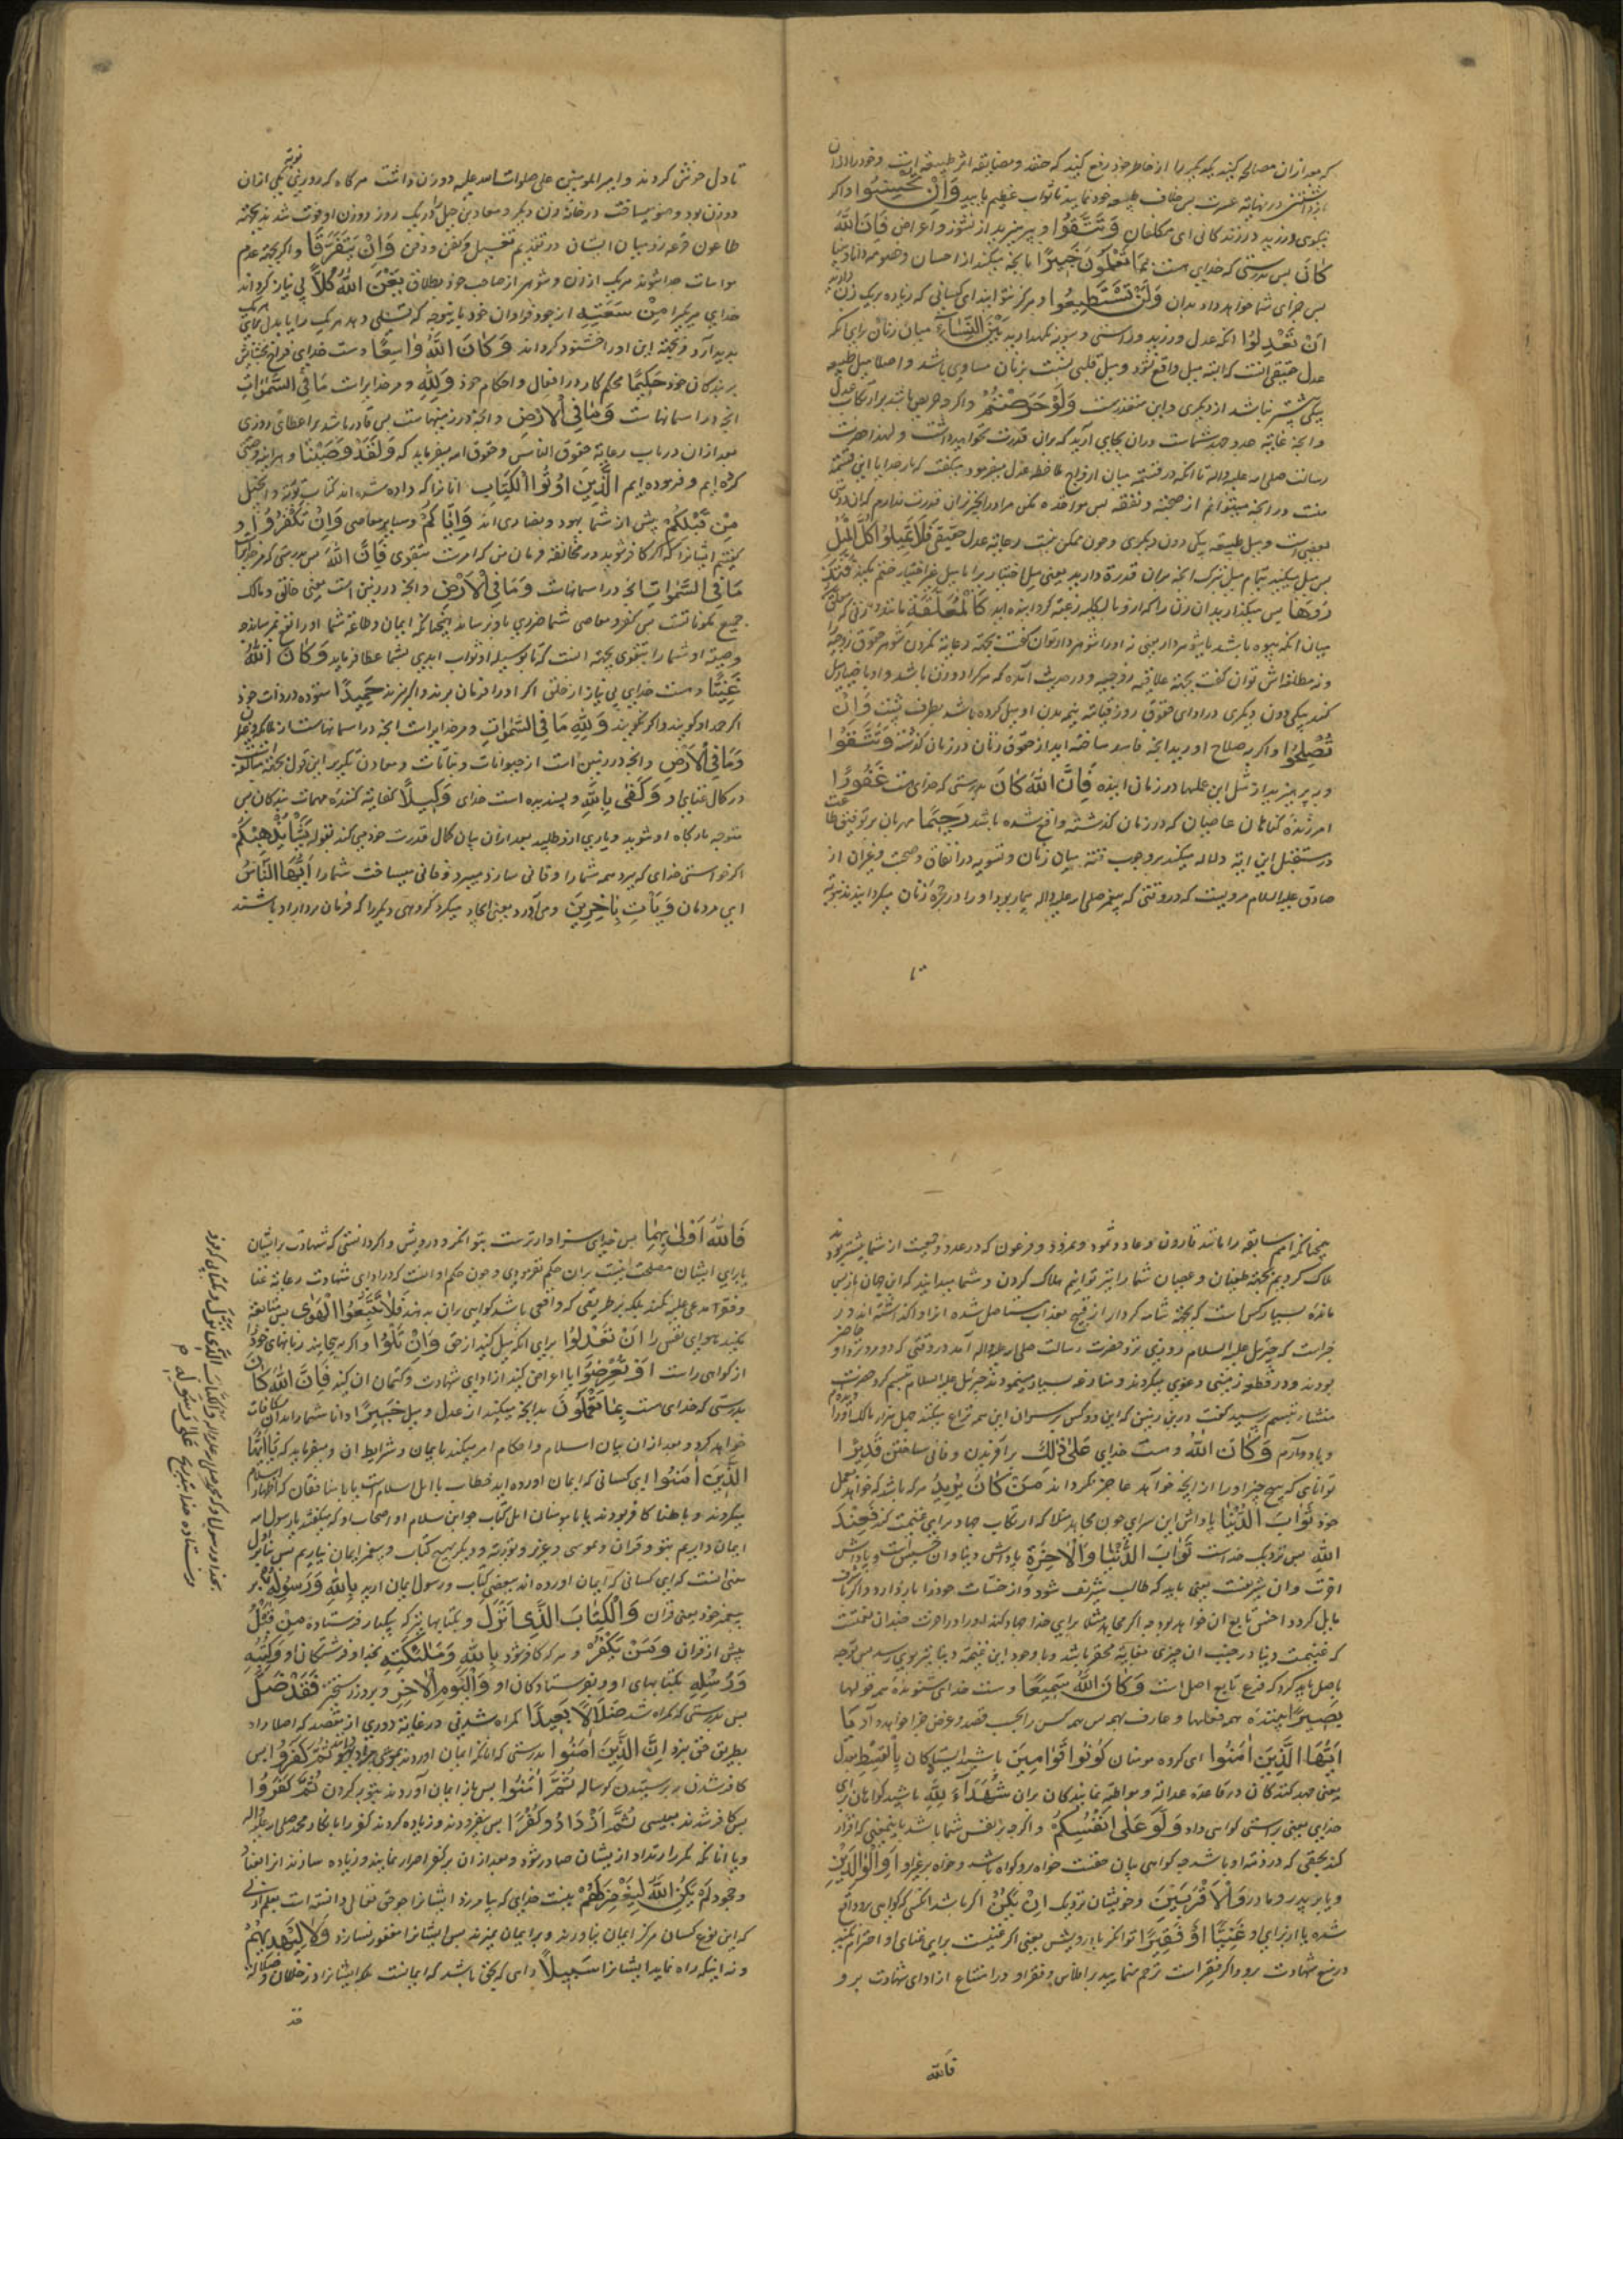 که بعد ازان مصالحه کنید یکدیگر را از خاطر خود رفع کنید که حقد و مضایقه اثر طبیعة است و خود را ازان
بازداشتن در نهایة عسرت پس خلاف طبیعه خود نمایید تا ثواب عظیم یابید وَاِنْ تُحْسِنُوا و اگر
نیکوی ورزید در زندکانی ای مکلفان وَتَتَّقُوا و بپرهیزید از نشوز و اعراض فَاِنَّ اللّٰهَ
كَانَ پس بدرستی که خدای هست بِمَا تَعْمَلُونَ خَبِيرًا بانچه میکنید از احسان و خصومه دانا و بینا
پس جزای شما خواهد داد بدان وَلَنْ تَسْتَطِيعُوا و هرکز نتوانید ای کسانی که زیاده بر یک زن دارید
اَنْ تَعْدِلُوا انکه عدل ورزید و راستی و سویه نکهدارید بَيْنَ النِّسَاءِ میان زنان برای انکه
عدل حقیقی انست که البته میل واقع نشود و میل قلبی نسبت بزنان مساوی باشد و اصلا میل طبیعه
بیکی بیشتر نباشد از دیکری و این متعذرست وَلَوْ حَرَصْتُمْ و اکرچه حریص باشید بر ارتکاب عدل
و انچه غایة جد و جهد شماست دران بجای آرید که بران قدرت نخواهید داشت و لهذا حضرت
رسالت صلی اله علیه واله با انکه در قسمة میان ازواج ملاحظه عدل میفرمود میکفت که بار خدایا این قسمة
منست در انچه میتوانم از صحبة و نفقه پس مواخذه مکن مرا در انچیز بران قدرت ندارم که ان دوستی
بعضیست و میل طبیعه بیکی دون دیکری و چون ممکن نیست رعایة عدل حقیقی فَلَا تَمِيلُوا كُلَّ الْمَيْلِ
پس میل مکنید بتمام میل بترک انچه بران قدرة دارید یعنی میل اختیاری را با میل غیر اختیار ضم مکنید فَتَذَ
رُوهَا پس میکذارید ان زن را که ازو بالکلیه رغبة کردانیده اید كَالْمُعَلَّقَةِ مانند زنی که معلق
میان انکه بیوه باشد یا شوهردار یعنی نه او را شوهردار توان کفت بجهة رعایة نکردن شوهر حقوق زوجیة
و نه مطلقه اش توان کفت بجهة علاقه زوجیه و در حدیث آمده که هرکرا دو زن باشد و او با ختیار میل
کند بیکی دون دیکری در ادای حقوق روز قیامة نیمه بدن او میل کرده باشد بطرف پشت وَاِنْ
تُصْلِحُوا و اکر بصلاح اورید انچه فاسد ساخته اید از حقوق زنان در زمان کذشته وَتَتَّقُوا
و بپرهیزید از مثل این عملها در زمان اینده فَاِنَّ اللّٰهَ كَانَ بدرستی که خدای هست غَفُورًا
امرزنده کناهان عاصیان که در زمان کذشته واقع شده باشد رَحِيمًا مهربان بر توفیق طاعت
در مستقبل این ایة دلاله میکند بر وجوب قسمة میان زنان و تسویه در انفاق و صحبت و غیر آن از
صادق علیه السلام مرویست که در وقتی که پیغمبر صلی اله علیه واله بیمار بود او را در حجره زنان میکردانیدند بنوبة
تا
تا دل خوش کردند و امیرالمومنین علی صلوات الله علیه دو زن داشت هرکاه که روز نوبة یکی ازان
دو زن بود وضو نمیساخت در خانه زن دیکر و معاذ بن جبل را در یک روز دو زن او فوت شدند بجهة
طاعون قرعه زد میان ایشان در تقدیم تغسیل و کفن و دفن وَاِنْ يَتَفَرَّقَا و اکر بجهة عدم
مواسات جدا شوند هر یک از زن و شوهر از صاحب خود بطلاق يُغْنِ اللّٰهُ كُلًّا بی نیاز کرداند
خدای هر یکی را مِنْ سَعَتِهِ از جود فراوان خود بانیوجه که تسلی دهد هر یک را یا بدل بجای هر یک
پدید آرد و بجهة این او را خشنود کرداند وَكَانَ اللّٰهُ وَاسِعًا و هست خدای فراخ بخشایش
بر بندکان خود حَكِيمًا محکم کار در افعال و احکام خود وَلِلّٰهِ و مر خدایراست مَا فِي السَّمٰوَاتِ
انچه در اسمانهاست وَمَا فِي الْاَرْضِ و انچه در زمینهاست پس قادر باشد بر اعطای روزی
بعد ازان در باب رعایة حقوق الناس و حقوق اله میفرماید که وَلَقَدْ وَصَّيْنَا و هر اینه وصی
کرده ایم و فرموده ایم الَّذِينَ اُوتُوا الْكِتَابَ انانرا که داده شده اند کتاب توریة و انجیل
مِنْ قَبْلِكُمْ پیش از شما یهود و نصاری اند وَاِيَّاكُمْ و سایر معاصی وَاِنْ تَكْفُرُوا و
کفتیم ایشانرا که اکر کافر شوید در مخالفة فرمان من که امرست بتقوی فَاِنَّ لِلّٰهِ پس بدرستی که مر خدایراست
مَا فِي السَّمٰوَاتِ انچه در اسمانهاست وَمَا فِي الْاَرْضِ و انچه در زمین است یعنی خالق و مالک
جمیع مکوناتست پس کفر و معاصی شما ضرری باو نرساند همچنانکه ایمان و طاعة شما او را نفع نمیرساند و
وصیة او شما را بتقوی بجهة انست که تا بوسیله او ثواب ابدی بشما عطا فرماید وَكَانَ اللّٰهُ
غَنِيًّا و هست خدای بی نیاز از خلق اکر او را فرمان برند و اکر نبرند حَمِيدًا ستوده در ذات خود
اکر حمد او کویند و اکر نکویند وَلِلّٰهِ مَا فِي السَّمٰوَاتِ و مر خدایراست انچه در اسمانهاست از ملائکه و غیر
وَمَا فِي الْاَرْضِ و انچه در زمین است از حیوانات و نباتات و معادن تکریر این قول بجهة مبالغه
در کمال غنای او وَكَفٰى بِاللّٰهِ و پسندیده است خدای وَكِيلًا کفایة کننده مهمات بندکان پس
متوجه بارکاه او شوید و یاری ازو طلبید بعد ازان بیان کمال قدرت خود میکند بقوله اِنْ يَشَأْ يُذْهِبْكُمْ
اکر خواستی خدای که ببرد همه شما را و فانی سازد میبرد و فانی میساخت شما را اَيُّهَا النَّاسُ
ای مردمان وَيَأْتِ بِاٰخَرِينَ و می آورد یعنی ایجاد میکرد کروهی دیکر را که فرمان بردار او باشند
همچنانکه امم سابقه را مانند قارون و عاد و ثمود و نمرود و فرعون که در عدد و جمعیت از شما بیشتر بودند
هلاک کردیم بجهة طغیان و عصیان شما را نیز توانیم هلاک کردن و شما میدانید که این جهان بازپس
مانده بسیار کس است که بجهة شامه کردار از قبح بعذاب مستاصل شده انرا واکذاشته اند و در
خبر است که جبرئیل علیه السلام روزی نزد حضرت رسالت صلی اله علیه واله آمد در وقتی که دو مرد نزد او حاضر
بودند و در قطعه زمینی دعوی میکردند و منازعه بسیار مینمودند جبرئیل علیه السلام تبسم کرد حضرت
منشاء تبسم پرسید کفت درین زمین که این دو کس بر سر ان این همه نزاع میکنند چهل هزار مالک او را دیده ام
و یاد دارم وَكَانَ اللّٰهُ و هست خدای عَلٰى ذٰلِكَ بر آفریدن و فانی ساختن قَدِيرًا
توانایی که هیچ چیز او را از انچه خواهد عاجز نکرداند مَنْ كَانَ يُرِيدُ هرکه باشد که خواهد بعمل
خود ثَوَابَ الدُّنْيَا پاداش این سرای چون مجاهد مثلا که ارتکاب جهاد برای غنیمت کند فَعِنْدَ
اللّٰهِ پس نزدیک خداست ثَوَابُ الدُّنْيَا وَالْاٰخِرَةِ پاداش دنیا و ان خسیس است و پاداش
اخرت و ان شریفست یعنی باید که طالب شریف شود و از خسّت خود را باز دارد و اکر باشرف
مایل کردد اخس تابع ان خواهد بود چه اکر مجاهد مثلا برای خدا جهاد کند او را در اخرت چندان نعمتست
که غنیمت دنیا در جنب ان چیزی بغایة محقر باشد و با وجود این غنیمة دنیا نیز بوی رسد پس توجه
باصل باید کرد که فرع تابع اصل است وَكَانَ اللّٰهُ سَمِيعًا و هست خدای شنونده همه قولها
بَصِيرًا بیننده همه فعلها و عارف بهمه پس همه کس را بحسب قصد و عرض جزا خواهد داد يَا
اَيُّهَا الَّذِينَ اٰمَنُوا ای کروه مومنان كُونُوا قَوَّامِينَ باشید ایستادکان بِالْقِسْطِ بعدل
یعنی جهد کنندکان در قاعده عدالة و مواظبة نمایندکان بران شُهَدَاءَ لِلّٰهِ باشید کواهان برای
خدای یعنی براستی کواهی داد وَلَوْ عَلٰى اَنْفُسِكُمْ و اکرچه بر نفس شما باشد باینمعنی که اقرار
کند بحقی که در ذمه او باشد چه کواهی بیان حقست خواه برو کواه باشد و خواه بر غیر او اَوِ الْوَالِدَيْنِ
و یا بر پدر و مادر وَالْاَقْرَبِينَ و خویشان نزدیک اِنْ يَكُنْ اکر باشد انکسی که کواهی برو واقع
شده یا از برای او غَنِيًّا اَوْ فَقِيرًا توانکر یا درویش یعنی اکر غنیست برای غنای او احترام مکنید
در منع شهادت برو و اکر فقیر است ترحم منمایید بر افلاس و فقر او در امتناع از ادای شهادت برو
فالله
فَاللّٰهُ اَوْلٰى بِهِمَا پس خدای سزاوارترست بتوانکر و درویش و اکر دانستی که شهادت بر ایشان
یا برای ایشان مصلحت نیست بران حکم نفرمودی و چون حکم او انست که در ادای شهادت رعایة غنا
و فقر مدعی علیه نکنند بلکه بر طریقی که واقعی باشد کواهی بران بدهند فَلَا تَتَّبِعُوا الْهَوٰى پس متابعة
مکنید هوای نفس را اَنْ تَعْدِلُوا برای انکه میل کنید از حق وَاِنْ تَلْوُوا و اکر بپیچانید زبانهای خود را
از کواهی راست اَوْ تُعْرِضُوا یا اعراض کنید از ادای شهادت و کتمان ان کنید فَاِنَّ اللّٰهَ كَانَ
بدرستی که خدای هست بِمَا تَعْمَلُونَ بدانچه میکنید از عدل و میل خَبِيرًا دانا شما را بدان مکافات
خواهد کرد و بعد ازان بیان اسلام و احکام امر میکند بایمان و شرایط ان و میفرماید که يَا اَيُّهَا
الَّذِينَ اٰمَنُوا ای کسانی که ایمان اورده اید خطاب با اهل اسلام است یا با منافقان که اظهار اسلام
میکردند و باطنا کافر بودند یا با مومنان اهل کتاب چو ابن سلام و اصحاب او که میکفتند یا رسول اله
ایمان داریم بتو و قران و موسی و عزیر و توریة و دیکر بهیچ کتاب و پیغمبر ایمان نیاریم پس بنابر اول
معنی انست که ای کسانی که ایمان اورده اند ببعضی کتاب و رسول ایمان ارید بِاللّٰهِ وَرَسُولِهِ بر
پیغمبر خود یعنی قران وَالْكِتَابِ الَّذِي اَنْزَلَ و بکتابها نیز که بیکبار فرستاده مِنْ قَبْلُ
پیش از قران وَمَنْ يَكْفُرْ و هرکه کافر شود بِاللّٰهِ وَمَلٰئِكَتِهِ بخدا و فرشتکان او وَكُتُبِهِ
وَرُسُلِهِ بکتابهای او و بفرستادکان او وَالْيَوْمِ الْاٰخِرِ و بروز رستخیز فَقَدْ ضَلَّ
پس بدرستی که کمراه شد ضَلَالًا بَعِيدًا کمراه شدنی در غایة دوری از مقصد که اصلا راه
بطریق حق نبرد اِنَّ الَّذِينَ اٰمَنُوا بدرستی که انانکه ایمان اوردند بموسی مراد یهودند ثُمَّ كَفَرُوا پس
کافر شدند بپرستیدن کوساله ثُمَّ اٰمَنُوا پس باز ایمان آوردند بتوبه کردن ثُمَّ كَفَرُوا
پس کافر شدند بعیسی ثُمَّ ازْدَادُوا كُفْرًا پس بیفزودند و زیاده کردند کفر را بانکار محمد صلی اله علیه واله
و یا انانکه مکرر ارتداد از ایشان صادر شود و بعد ازان بر کفر اصرار نمایند و زیاده سازند انرا
و جحود لَمْ يَكُنِ اللّٰهُ لِيَغْفِرَ لَهُمْ نیست خدای که بیامرزد ایشانرا چو حق تعالی دانسته است بعلم ازلی
که این نوع کسان هرکز ایمان نیاورند و بر ایمان نمیرند پس ایشانرا مغفور نسازد وَلَا لِيَهْدِيَهُمْ
و نه اینکه راه نماید ایشانرا سَبِيلًا راهی که بحق باشد که ایمانست بلکه ایشانرا در خذلان و ضلالة
بخدا و رسول او که محمد صلی اله علیه واله وَالْكِتَابِ الَّذِي نَزَّلَ و بکتابی که فرود
فرستاده خدا بتدریج عَلٰى رَسُولِهِ